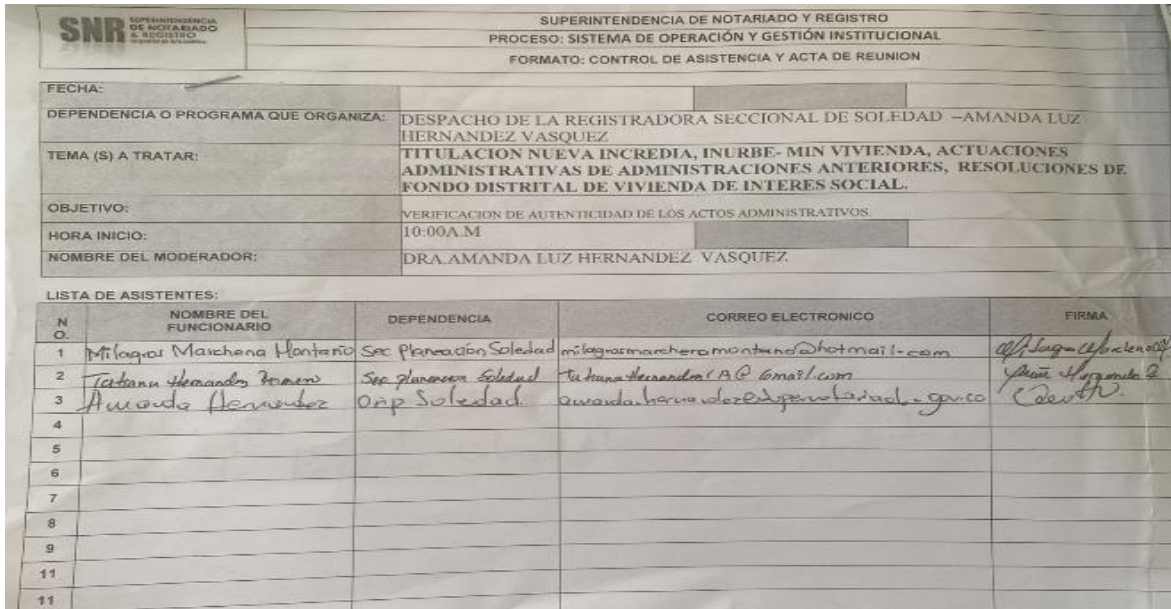 SNR SUPERINTENDENCIA
DE NOTARIADO
& REGISTRO
SUPERINTENDENCIA DE NOTARIADO Y REGISTRO
PROCESO: SISTEMA DE OPERACIÓN Y GESTIÓN INSTITUCIONAL
FORMATO: CONTROL DE ASISTENCIA Y ACTA DE REUNION
FECHA:
DEPENDENCIA O PROGRAMA QUE ORGANIZA: DESPACHO DE LA REGISTRADORA SECCIONAL DE SOLEDAD –AMANDA LUZ
HERNANDEZ VASQUEZ
TEMA (S) A TRATAR: TITULACION NUEVA INCREDIA, INURBE- MIN VIVIENDA, ACTUACIONES
ADMINISTRATIVAS DE ADMINISTRACIONES ANTERIORES, RESOLUCIONES DE
FONDO DISTRITAL DE VIVIENDA DE INTERES SOCIAL.
OBJETIVO: VERIFICACION DE AUTENTICIDAD DE LOS ACTOS ADMINISTRATIVOS.
HORA INICIO: 10:00A.M
NOMBRE DEL MODERADOR: DRA.AMANDA LUZ HERNANDEZ VASQUEZ
LISTA DE ASISTENTES:
N
O. NOMBRE DEL
FUNCIONARIO DEPENDENCIA CORREO ELECTRONICO FIRMA
1 Milagros Marchena Montaño Sec Planeación Soledad
2 Tatiana Hernandez Sec planeacion Soledad
3 Amanda Hernandez Orip Soledad.
4
5
6
7
8
9
11
11